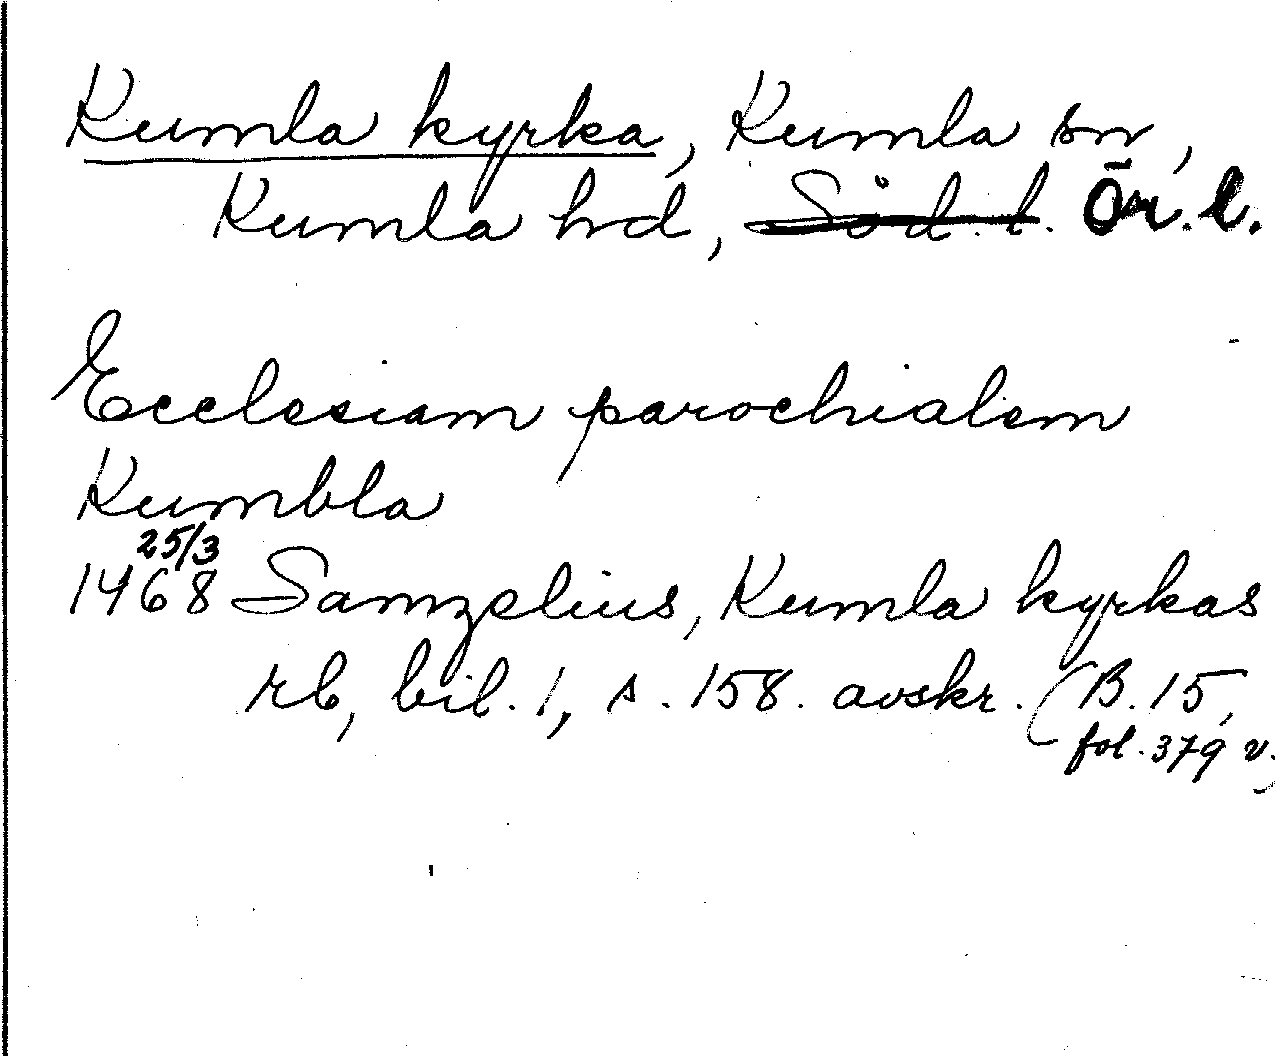 Kumla kyrka, Kumla sn,
Kumla hd, Söd. l. Ör. l.
Ecclesiam parochialem
Kumbla
25/3
1468 Samzelius, Kumla kyrkas
rb, bil. 1, s. 158. avskr. (B. 15,
fol. 379 v.)